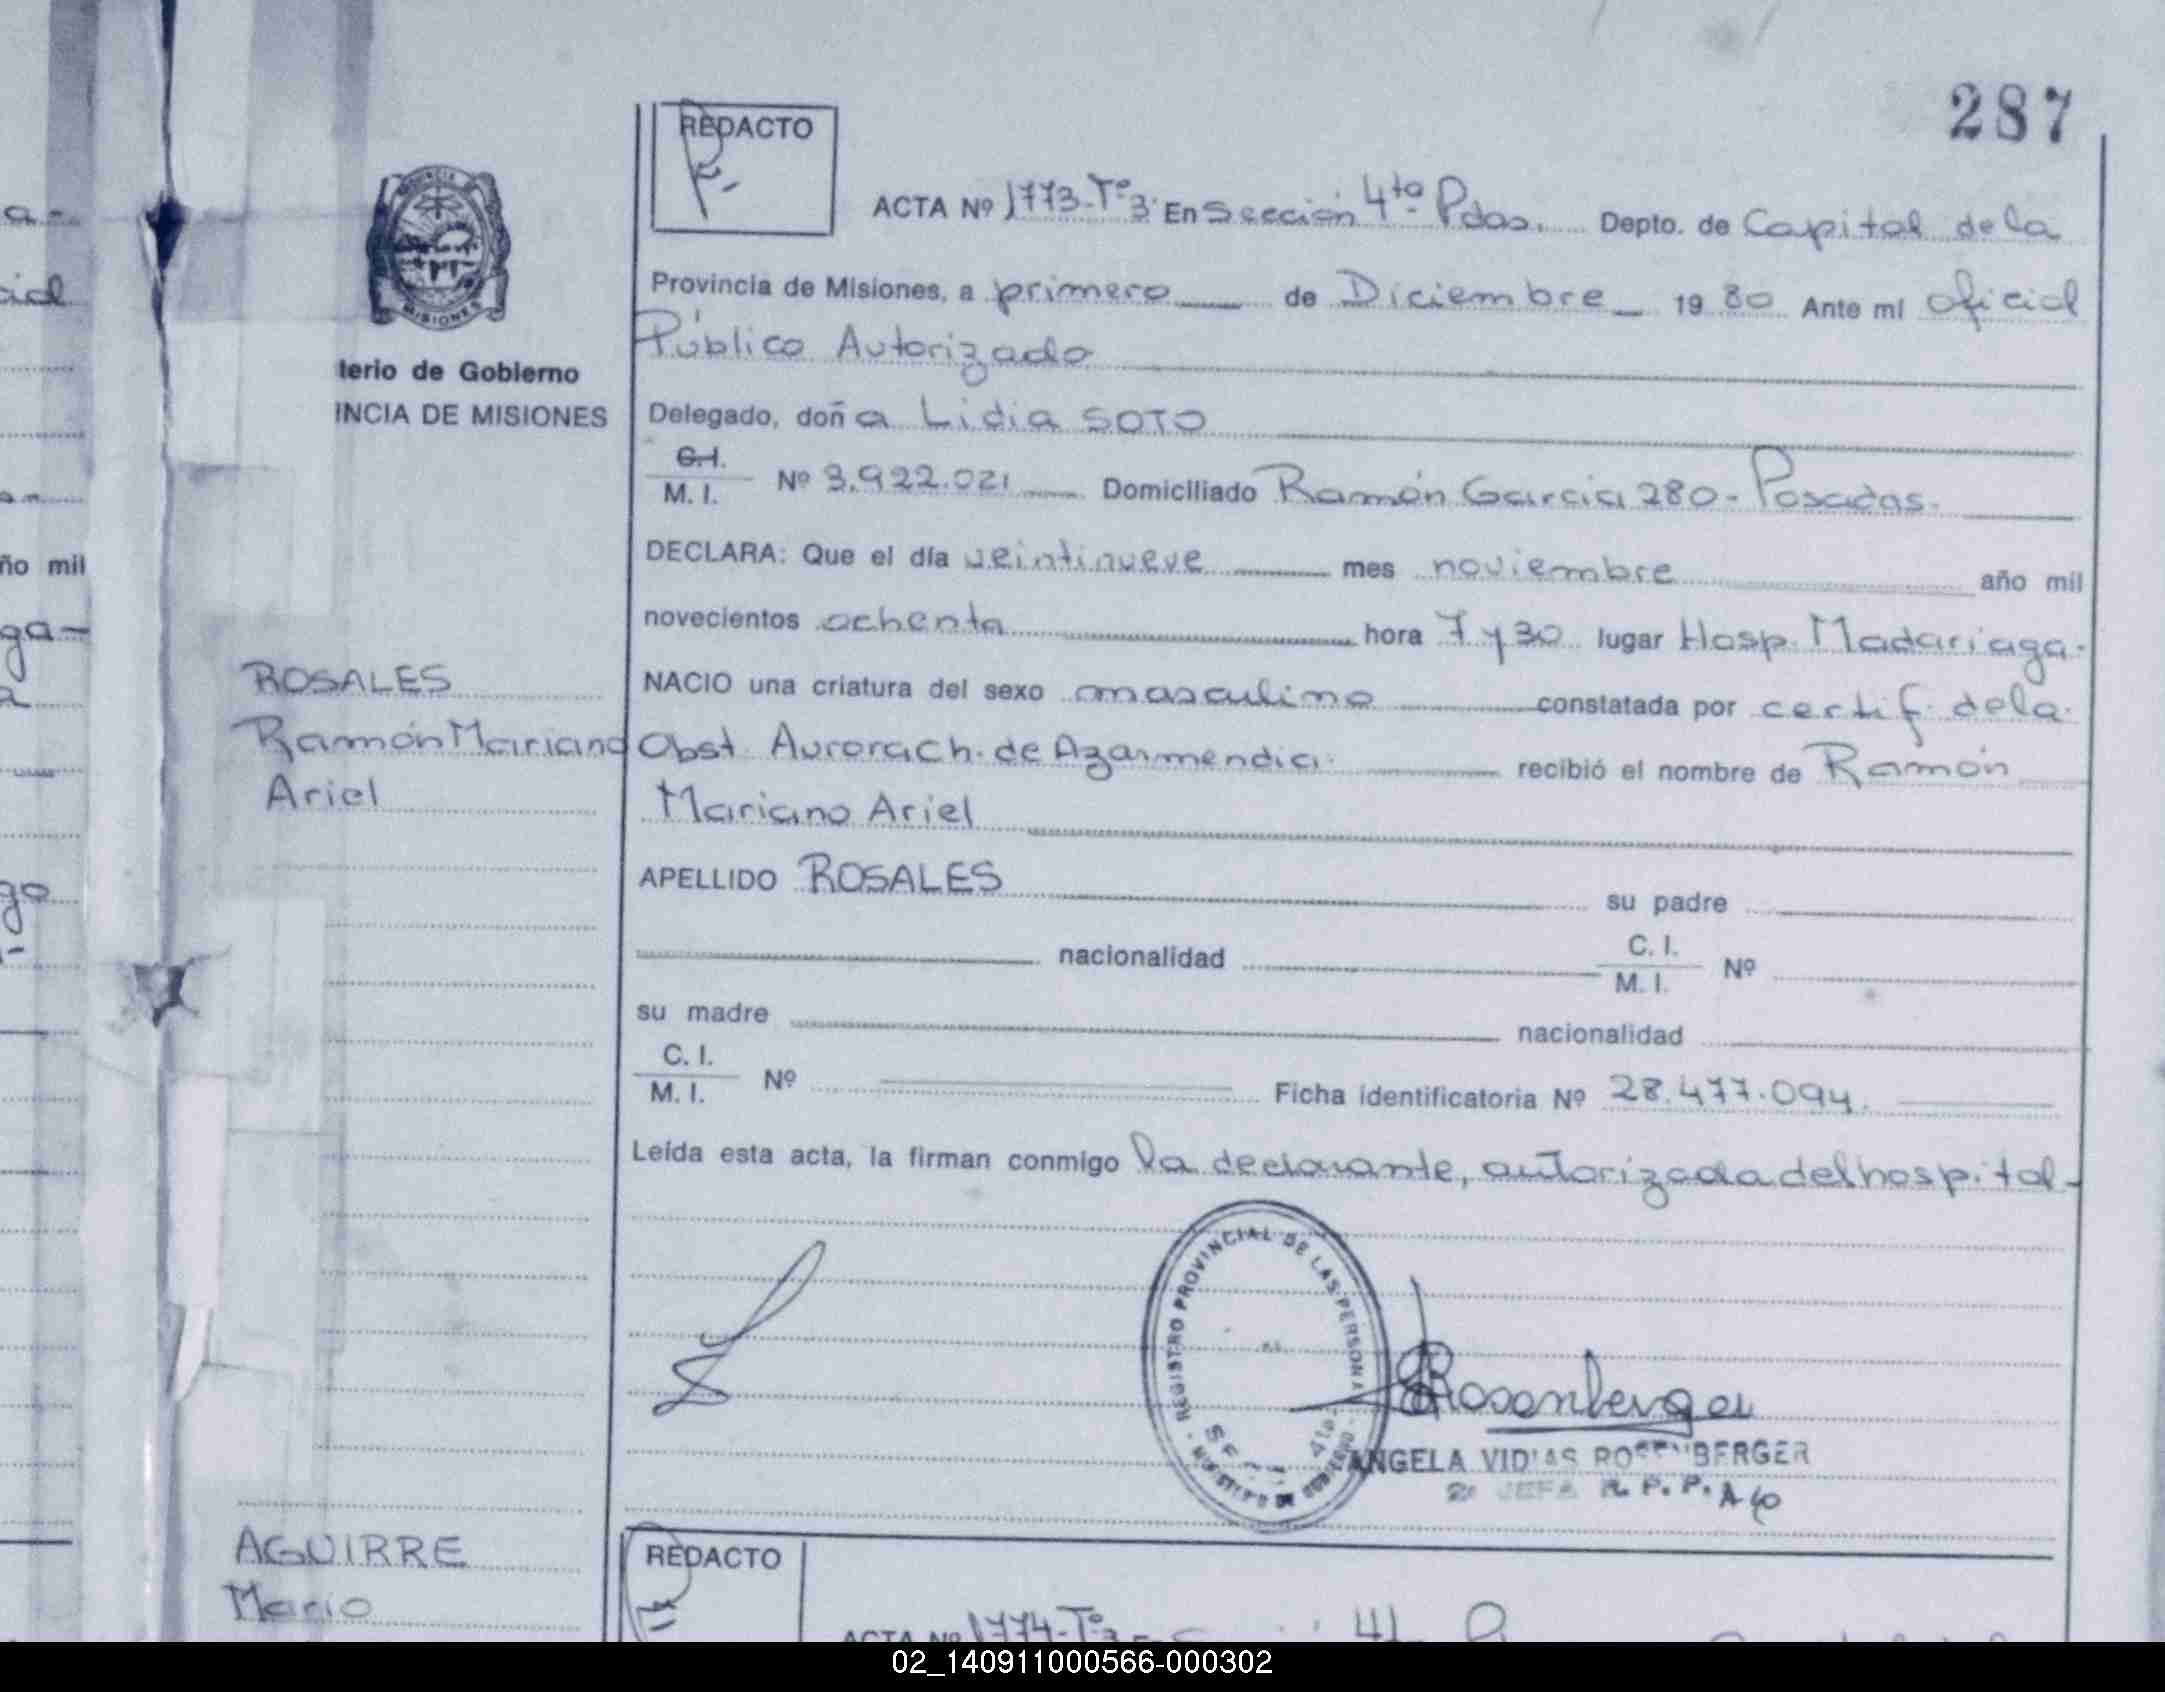 287
REDACTO
ACTA Nº 1773-Tº3 En Sección 4ta Pdas. Depto. de Capital de la
Provincia de Misiones, a primero de Diciembre 19 80 Ante mi Oficial
Público Autorizado
terio de Gobierno
INCIA DE MISIONES
Delegado, doña Lidia SOTO
C.I.
M. I. Nº 3.922.021 Domiciliado Ramón Garcia 280 - Posadas.
DECLARA: Que el día veintinueve mes noviembre año mil
novecientos ochenta hora 7 y 30 lugar Hosp. Madariaga.
NACIO una criatura del sexo masculino constatada por certif. de la
Obst. Aurora Ch. de Azarmendia. recibió el nombre de Ramón
Mariano Ariel
ROSALES
Ramón Mariano
Ariel
APELLIDO ROSALES su padre
nacionalidad C. I.
M. I. Nº
su madre nacionalidad
C. I.
M. I. Nº Ficha identificatoria Nº 28.477.094.
Leída esta acta, la firman conmigo la declarante, autorizada del hospital-
REGISTRO PROVINCIAL DE LAS PERSONA
Rosenberger
ANGELA VIDAS ROSENBERGER
2ª JEFA R. P. P.
AGUIRRE
Mario
REDACTO
ACTA Nº 1774-Tº3
ño mil
MISIONES
02_140911000566-000302